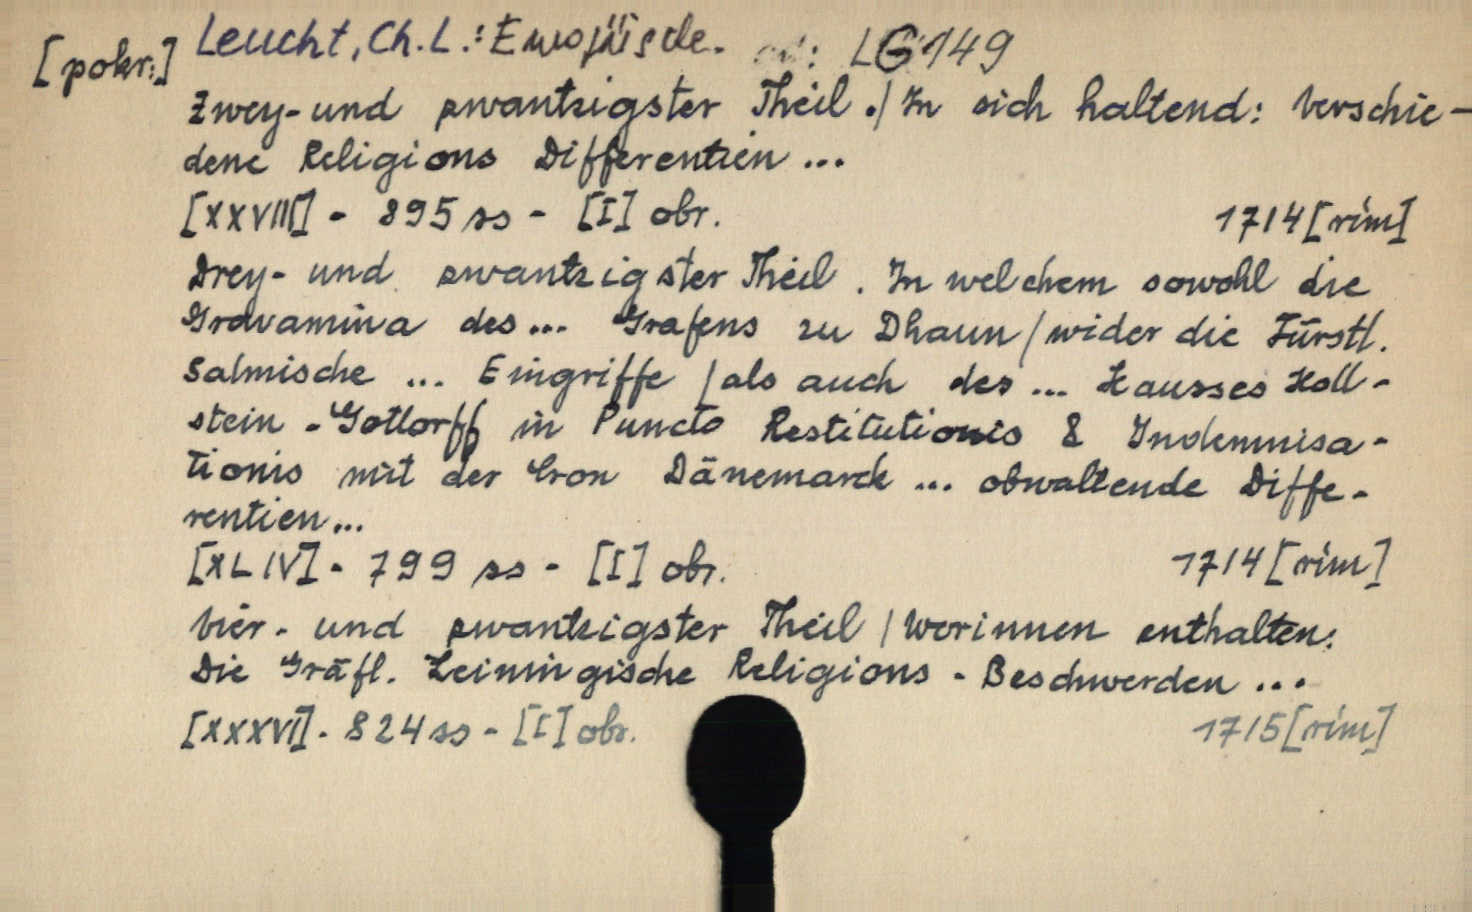 [pokr:] Leucht, Ch. L.: Europäische. LG 149
Zwey- und zwantzigster Theil ./ In sich haltend: Verschie-
dene Religions Differentien ...
[XXVIII] - 895 ss - [I] obr. 1714 [rím]
Drey- und zwantzigster Theil . In welchem sowohl die
Gravamina des ... Grafens zu Dhaun / wider die Fürstl.
Salmische ... Eingriffe / als auch des ... Hausses Holl-
stein - Gottorff in Puncto Restitutionis & Indemnisa-
tionis mit der Cron Dänemarck ... obwaltende Diffe-
rentien ...
[XLIV] - 799 ss - [I] obr. 1714 [rím]
Vier- und zwantzigster Theil / Worinnen enthalten:
Die Gräfl. Leiningische Religions - Beschwerden ...
[XXXVI] - 824 ss - [I] obr. 1715 [rím]